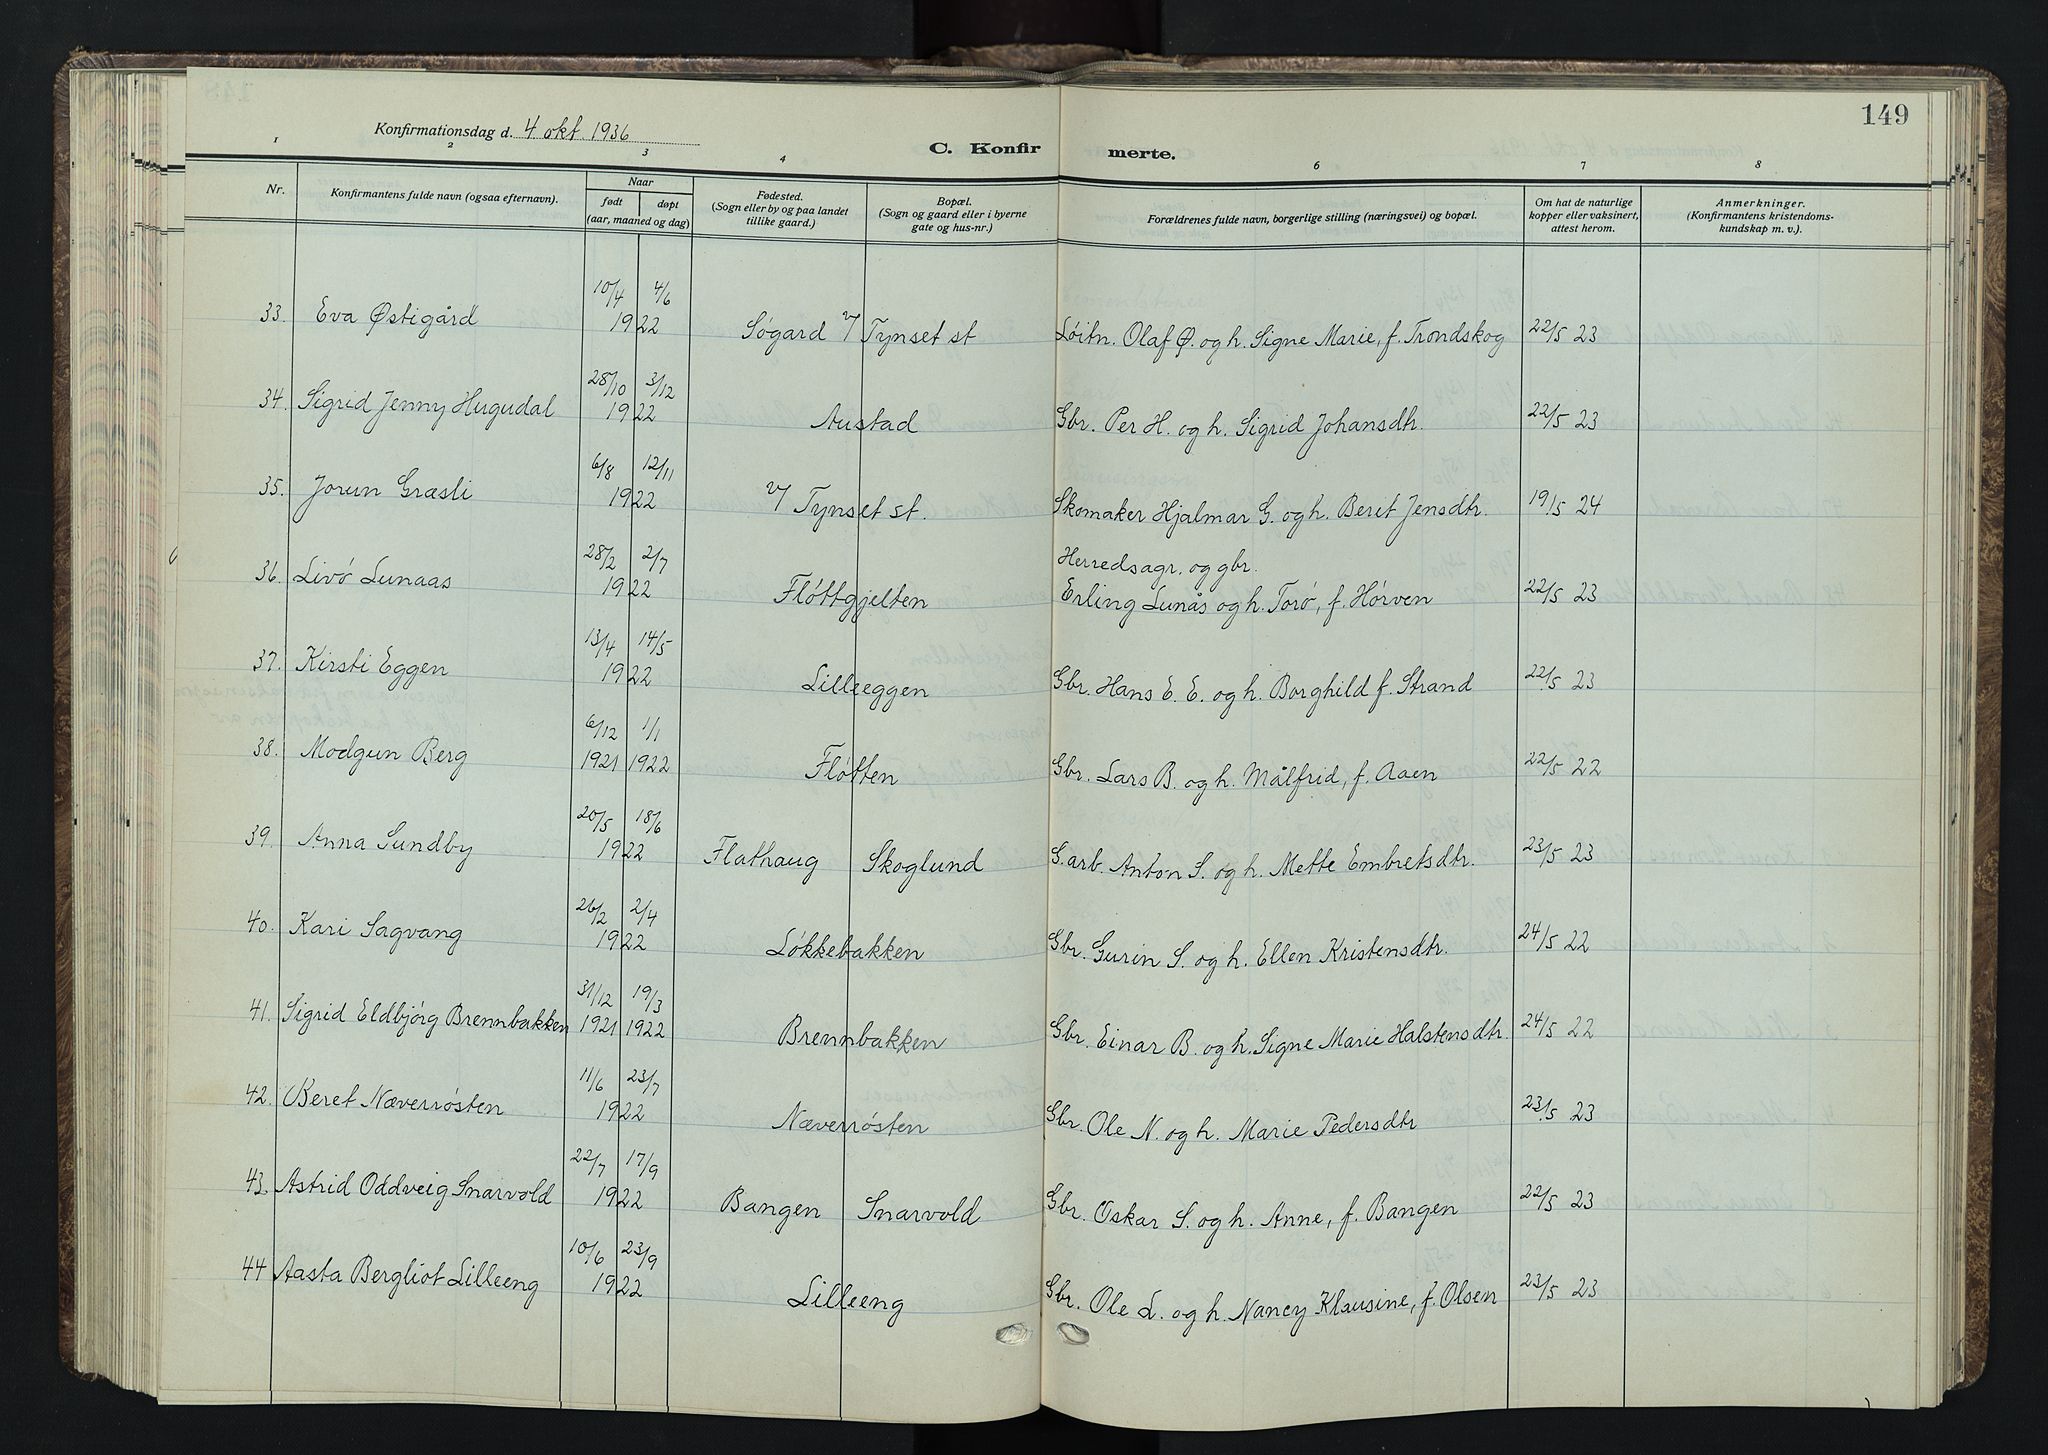 149
Konfirmationsdag d. 4. okt. 1936
C. Konfirmerte.
1 2 3 4 6 7 8
Nr.
Konfirmantens fulde navn (ogsaa efternavn).
Naar
født døpt
(aar, maaned og dag)
Fødested.
(Sogn eller by og paa landet
tillike gaard.)
Bopæl.
(Sogn og gaard eller i byerne
gate og hus-nr.)
Forældrenes fulde navn, borgerlige stilling (næringsvei) og bopæl.
Om hat de naturlige
kopper eller vaksinert,
attest herom.
Anmerkninger.
(Konfirmantens kristendoms-
kundskap m. v.).
10/4 4/6
33. Eva Østigård 1922 Søgard v/ Tynset st Løitn. Olaf Ø. og h. Signe Marie, f. Trondskog 22/5 23
28/10 3/12
34. Sigrid Jenny Hugudal 1922 Austad Gbr. Per H. og h. Sigrid Johansdtr. 22/5 23
6/8 12/11
35. Jorun Græsli 1922 v/ Tynset st. Skomaker Hjalmar G. og h. Berit Jensdtr. 19/5 24
28/2 2/7 Herredsagr. og gbr.
36. Livø Lunaas 1922 Fløttgjelten Erling Lunås og h. Torø, f. Hørven 22/5 23
13/4 14/5
37. Kirsti Eggen 1922 Lilleeggen Gbr. Hans E. E. og h. Borghild f. Strand 22/5 23
6/12 1/1
38. Modgun Berg 1921 1922 Fløtten Gbr. Lars B. og h. Målfrid, f. Aaen 22/5 22
20/5 18/6
39. Anna Sundby 1922 Flathaug Skoglund G. arb. Anton S. og h. Mette Embretsdtr. 23/5 23
26/2 2/4
40. Kari Sagvang 1922 Løkkebakken Gbr. Gurin S. og h. Ellen Kristensdtr. 24/5 22
31/12 19/3
41. Sigrid Eldbjørg Brennbakken 1921 1922 Brennbakken Gbr. Einar B. og h. Signe Marie Halstensdtr. 24/5 22
11/6 23/7
42. Beret Næverrøsten 1922 Næverrøsten Gbr. Ole N. og h. Marie Pedersdtr 23/5 23
22/7 17/9
43. Astrid Oddveig Snarvold 1922 Bangen Snarvold Gbr. Oskar S. og h. Anne, f. Bangen 22/5 23
10/6 23/9
44 Aasta Bergliot Lilleeng 1922 Lilleeng Gbr. Ole L. og h. Nancy Klausine, f. Olsen 23/5 23